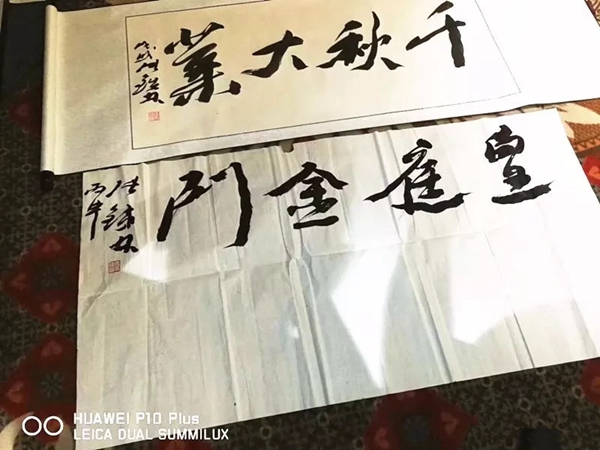 千秋大業
戊戌
皇庭金門
張鐵林
HUAWEI P10 Plus
LEICA DUAL SUMMILUX